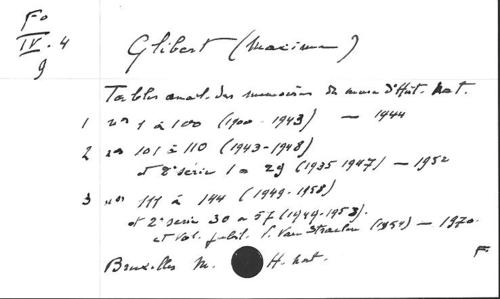 Fo
IV. 4
9
Glibert (Maxime)
Tables anal. des mémoires du musée d'Hist. Nat.
1 nos 1 à 100 (1900-1943) — 1944
2 nos 101 à 110 (1943-1948)
et 2e série 1 à 29 (1935-1947) — 1952
3 nos 111 à 144 (1949-1958)
et 2e série 30 à 57 (1949-1953).
et vol. jubil. V. Van Straelen (1954) — 1970.
Bruxelles M. H. nat.
F.